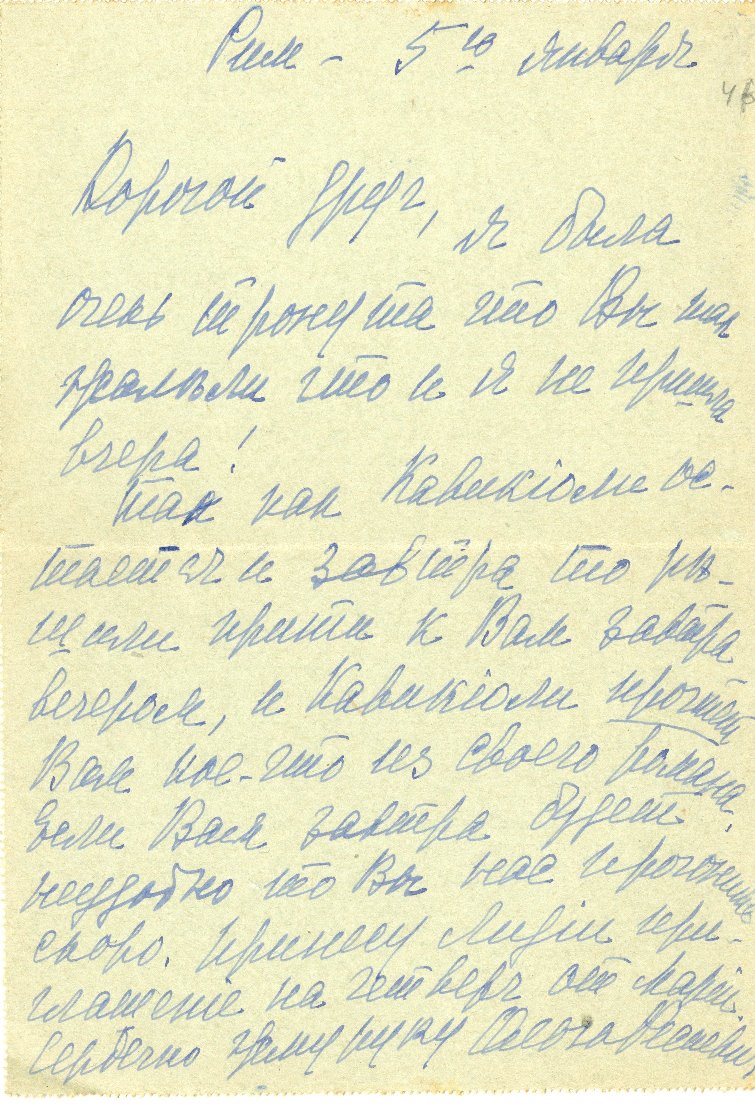 Рим - 5го января
Дорогой друг, я была
очень тронута что Вы так
жалѣли что и я не пришла
вчера!
Так как Кавикіоли ос-
тается и завтра то рѣ-
шили прити к Вам завтра
вечером, и Кавикіоли прочтет
Вам кое-что из своего романа.
Если Вам завтра будет
неудобно то Вы нас прогоните
скоро. Принесу Лидіи при-
глашеніе на четверг от Маріи.
Сердечно жму руку Ольга